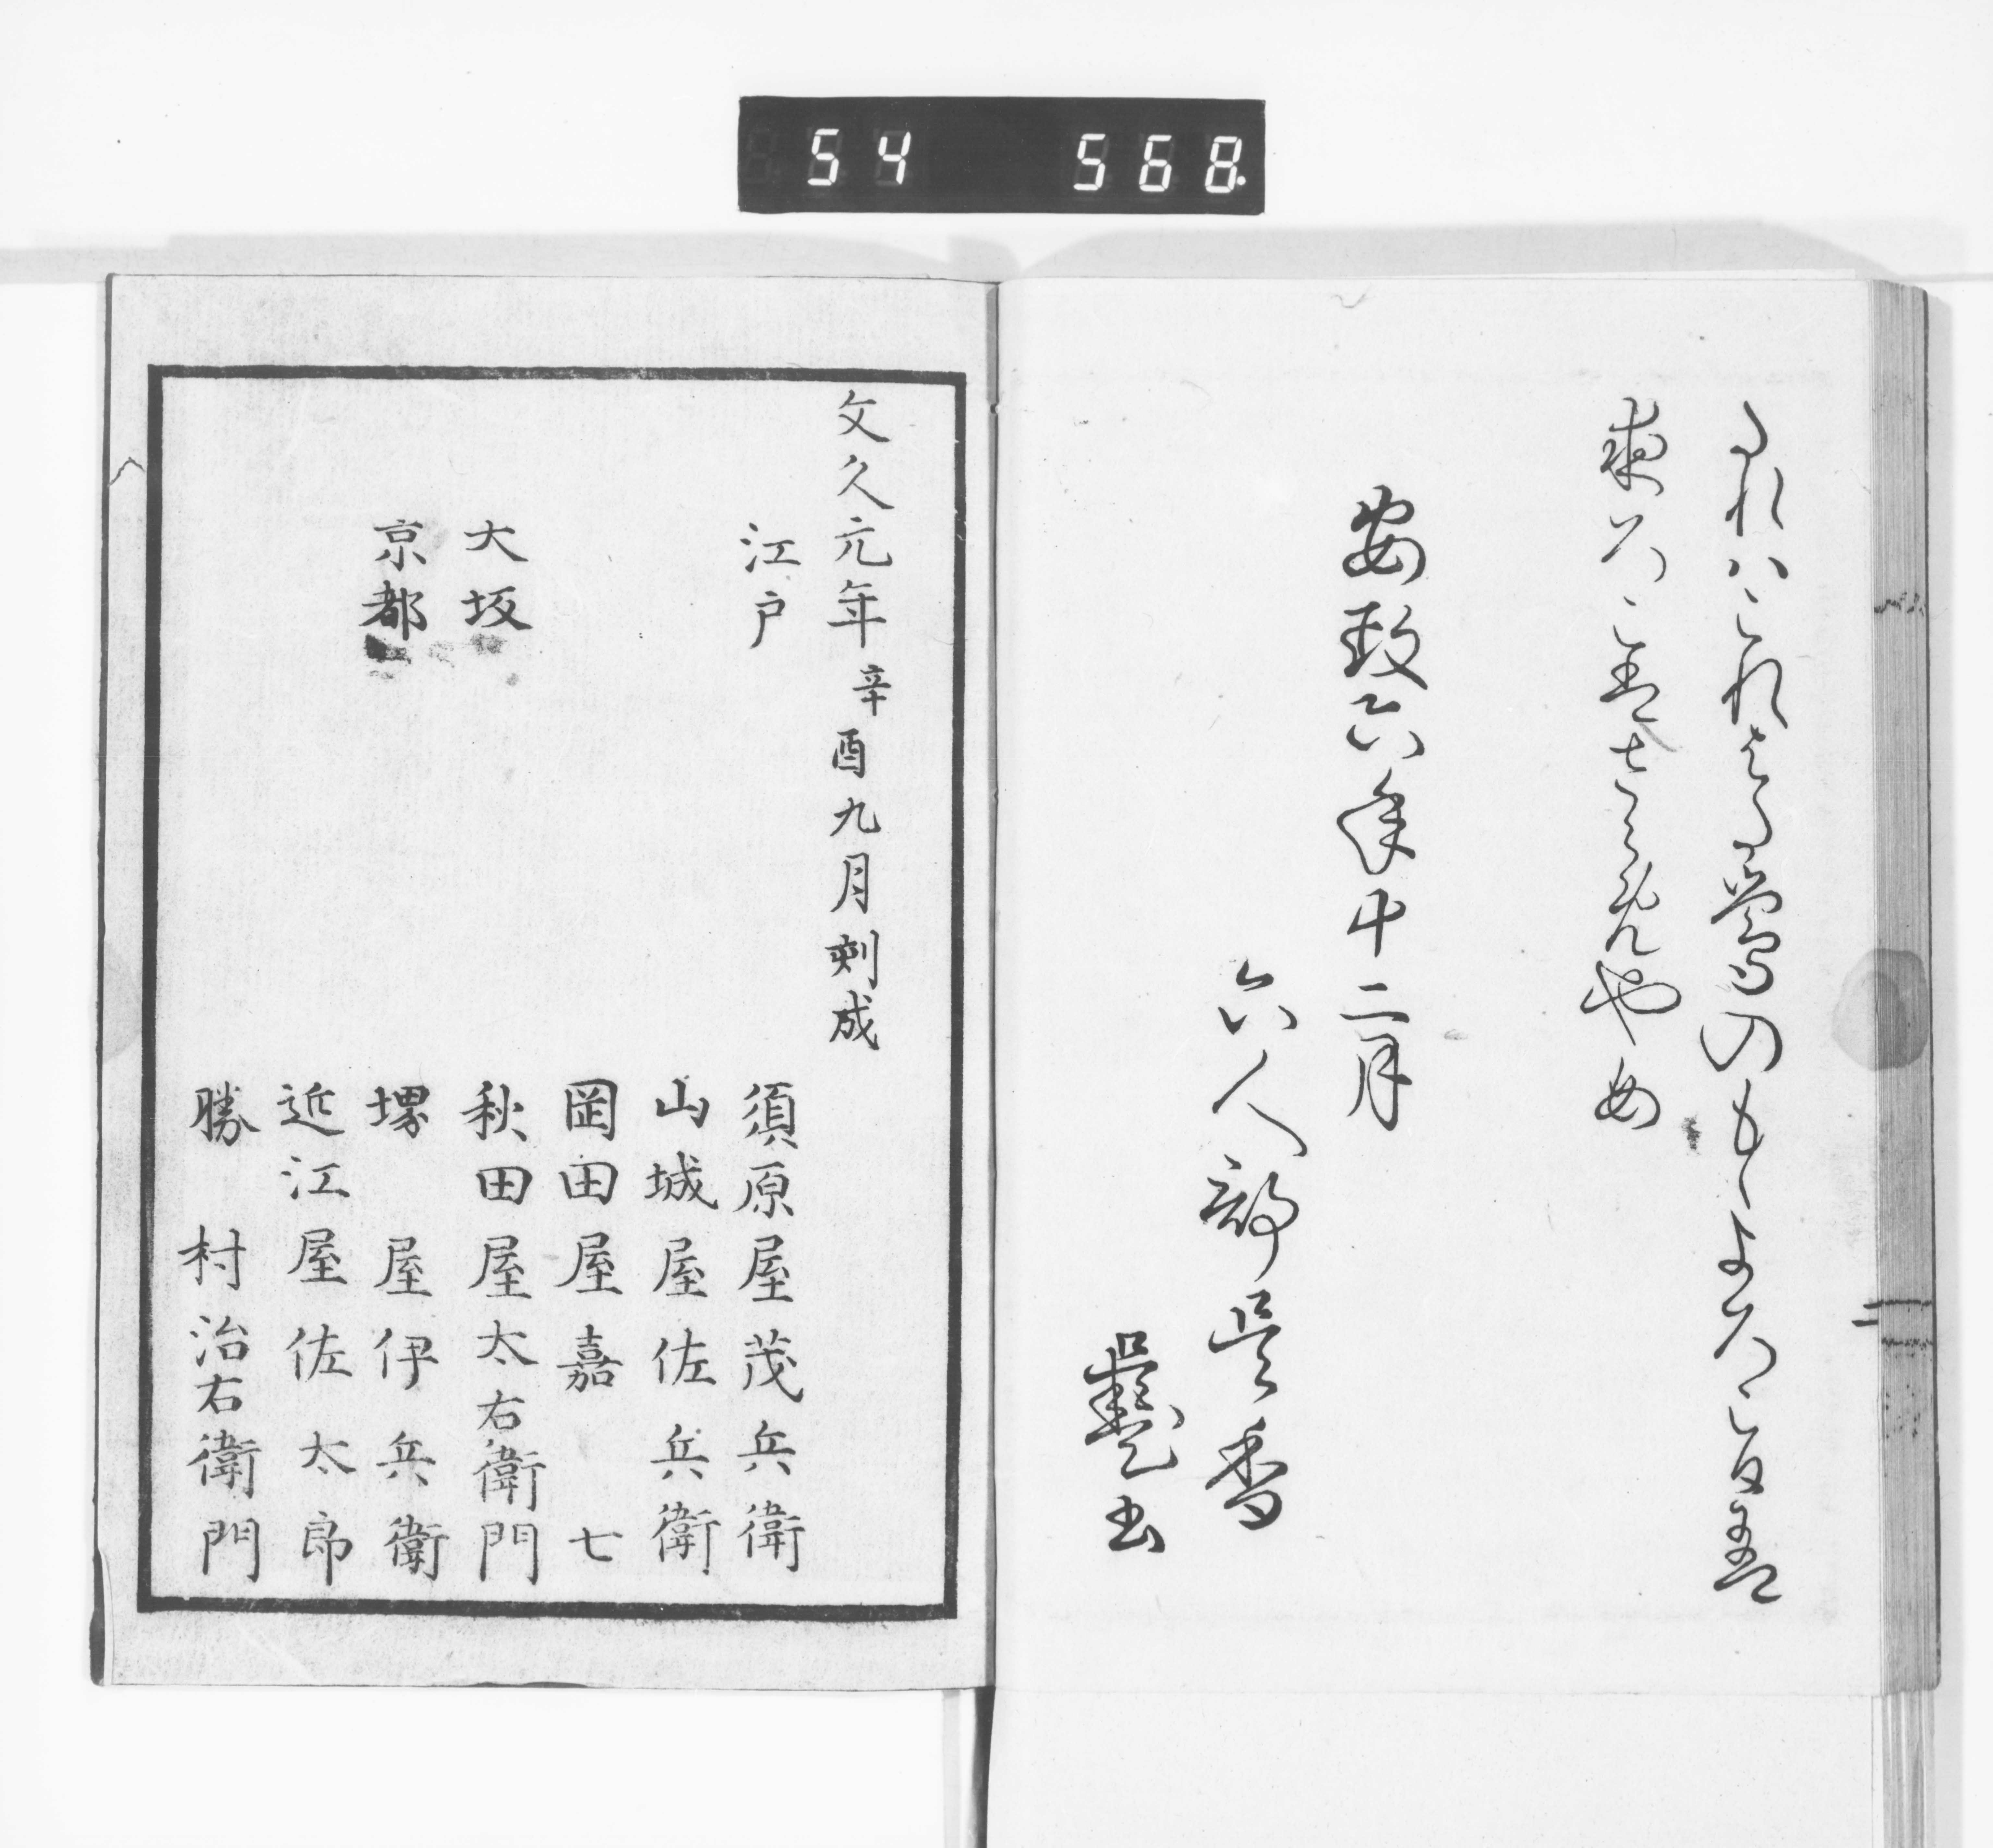 54 568
鶯のもゝよろこ
安政六年十二月
六人部是香
書
文久元年辛酉九月刻成
江戸 須原屋茂兵衛
山城屋佐兵衛
岡田屋嘉七
大坂 秋田屋太右衛門
京都 堺屋伊兵衛
近江屋佐太郎
勝村治右衛門